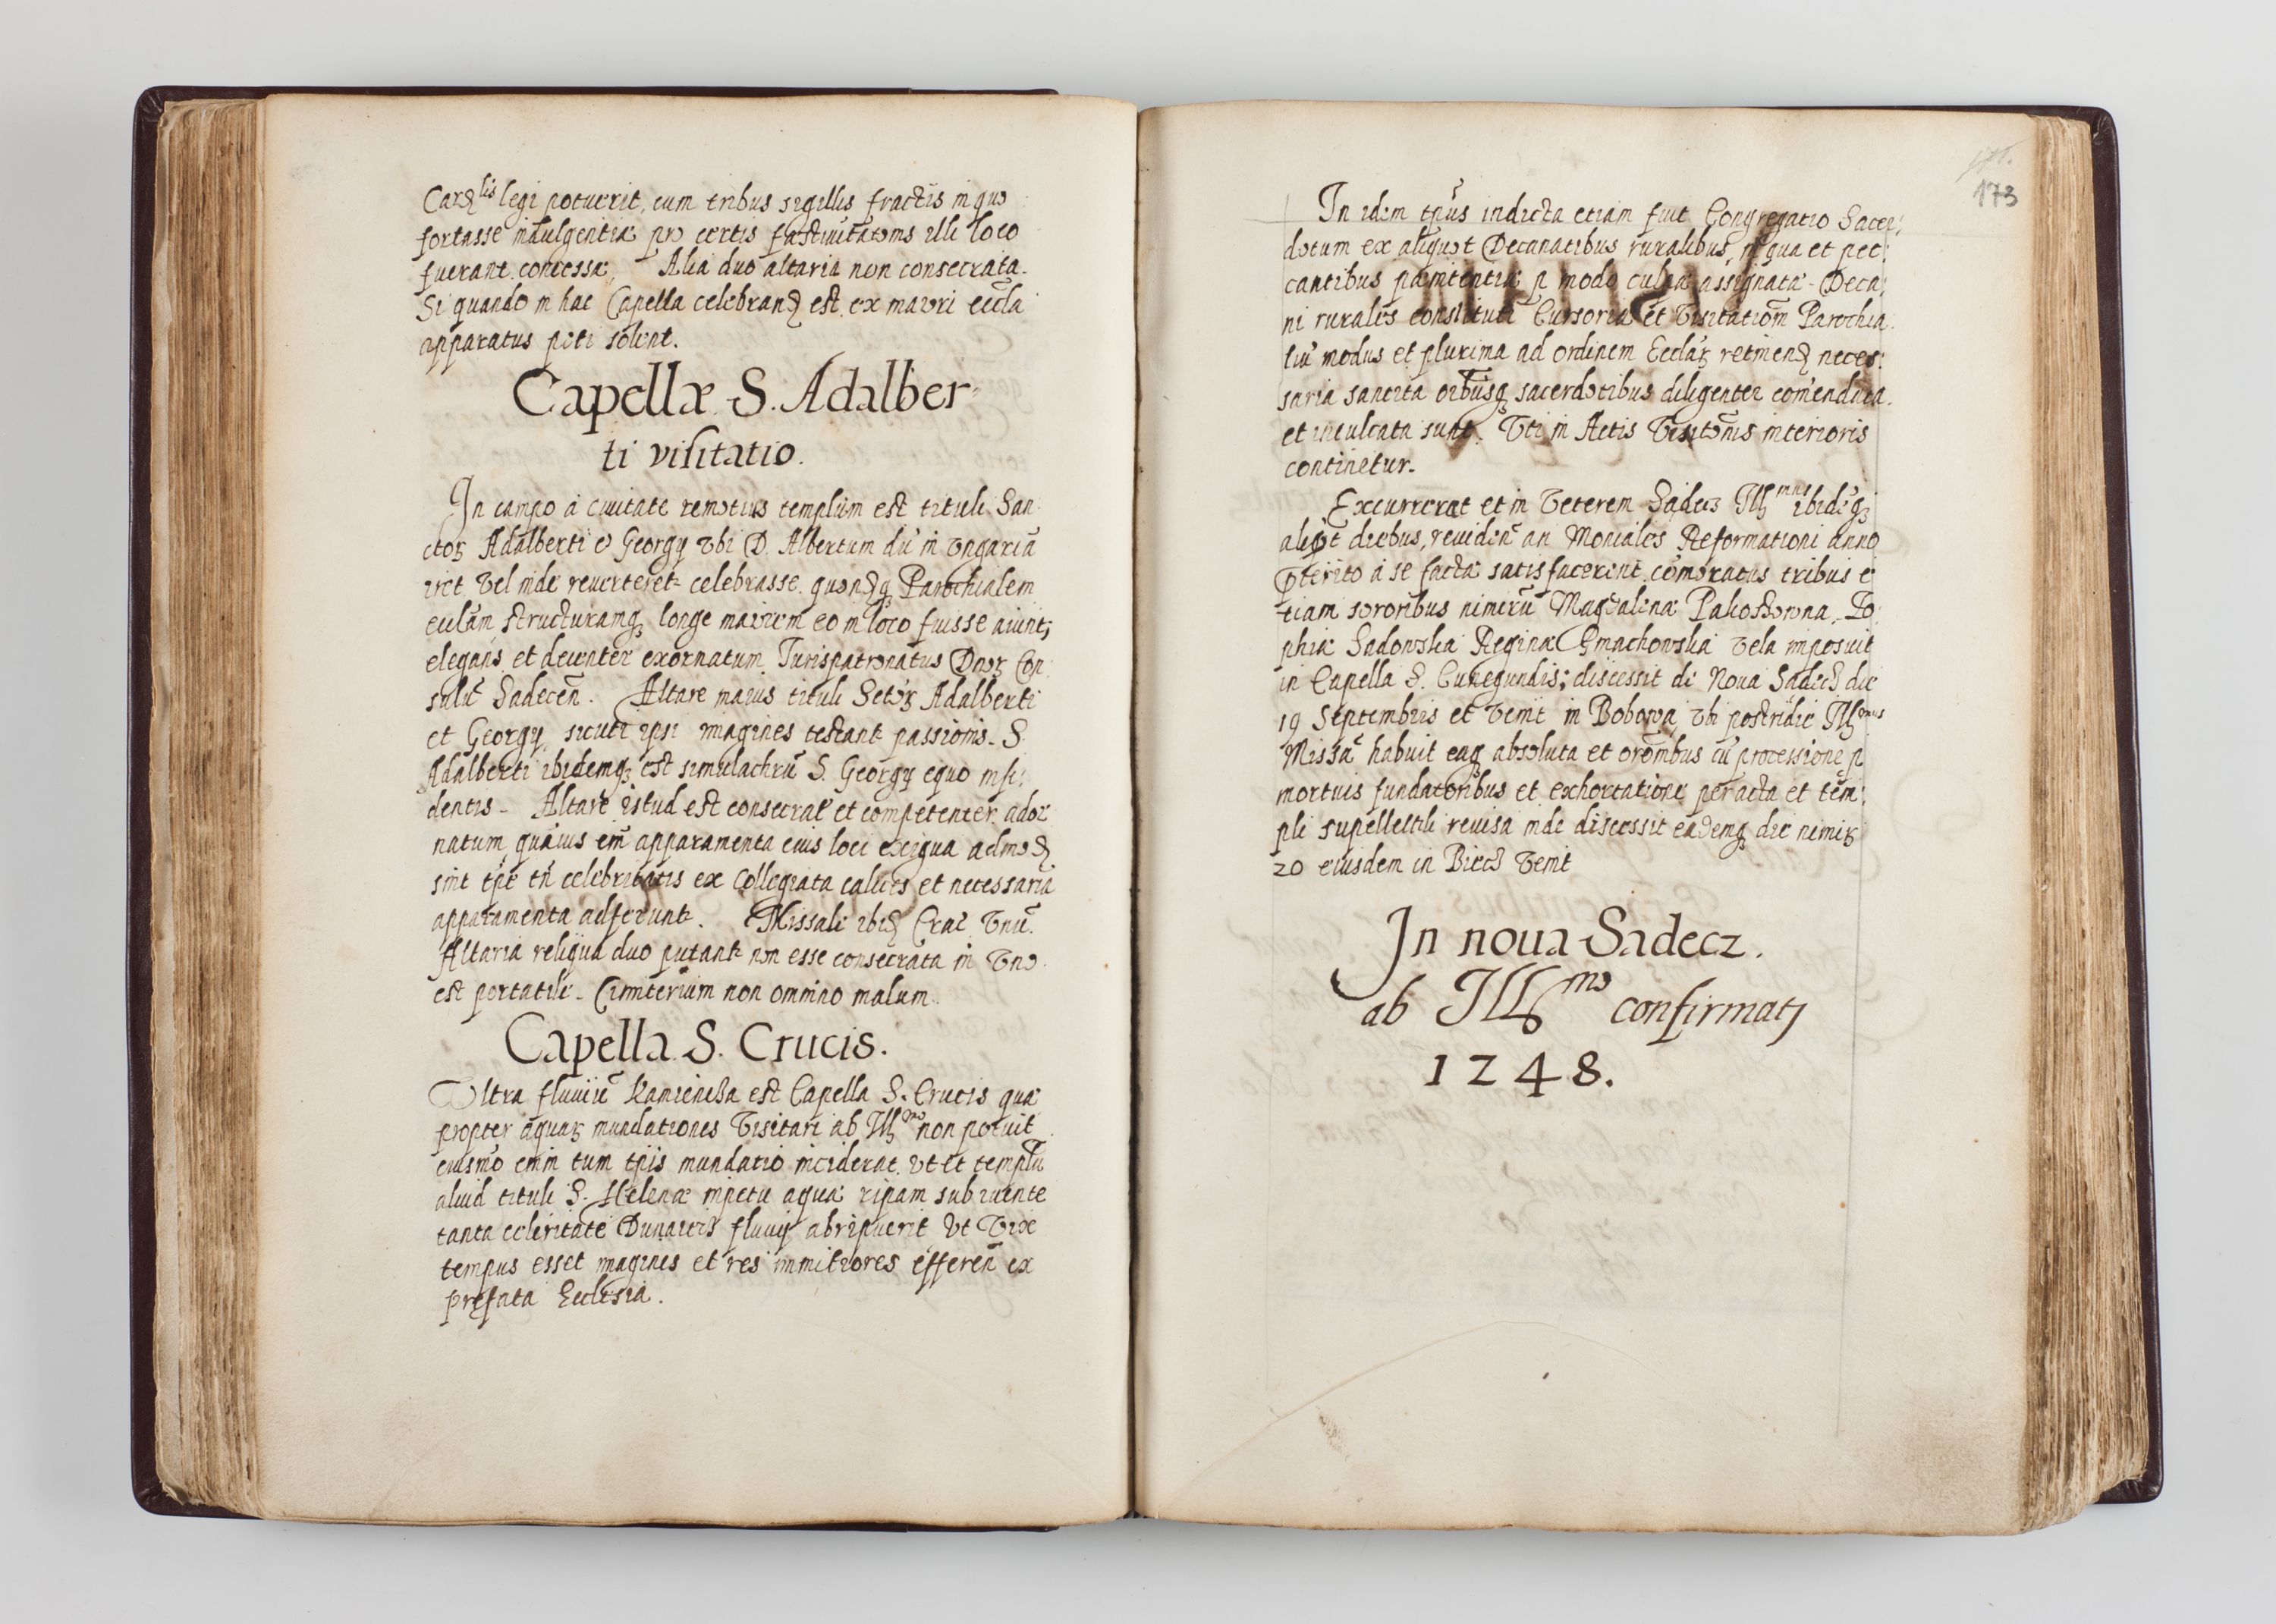 Cardlis legi potuerit, cum tribus sigillis fractis in quo
fortasse indulgentiæ pro certis fæstiuitatoms illi loco
fuerant concessæ. Alia duo altaria non consecrata.
Si quando in hac Capella celebrand est, ex maiori eccla
apparatus peti solent.
Capellæ S. Adalber-
ti visitatio.
In campo à ciuitate remotius templum est tituli San
ctoꝝ Adalberti & Georgÿ vbi D. Albertum dū in Vngariā
iret vel inde reuerteret celebrasse quondꝗ Parochialem
ecclām structuramqꝫ longe maiorem eo in loco fuisse aiunt,
elegans et decenter exornatum Jurispatronatus Dnoꝝ Con
sulū Sadecen̄. Altare maius tituli Sctoꝝ Adalberti
et Georgÿ, sicuti ipsi imagines testant passionis S.
Adalberti ibidemqꝫ est simulachrū S. Georgÿ equo insi:
dentis. Altare istud est consecrat et competenter ador
natum, quauis em̄ apparamenta eius loci exigua admod
sint tpē tn̄ celebritatis ex Collegiata calices et necessaria
apparamenta adferunt. Missale ibid Erat Vnū.
Altaria reliqua duo putant non esse consecrata in Vno
est portatile. Cimiterium non omnino malum.
Capella S. Crucis.
Vltra fluuiū Kamienicza est Capella S. Crucis quæ
propter aquaꝝ inundationes Visitari ab Illmo non potuit
eiusmo enim tum tpis inundatio inciderat vt et templū
aliud tituli S. Helenæ impetu aquæ ripam subeunte
tanta celeritate Dunaiecz fluuÿ abripuerit Vt Vix
tempus esset imagines et res efferen̄ ex
prefata Ecclesia.
173
In idem tpūs indicta etiam fuit Congregatio Sacer,
dotum ex aliquot Decanatibus ruralibus, in qua et pec:
cantibus pænitentiæ p modo culpæ assignatæ. Deca,
ni rurales constituti Cursoria et Visitatiom̄ Parochia
liū modus et plurima ad ordinem Ecclaꝝ retinend neces:
saria sancita oibusqꝫ sacerdotibus diligenter com̄endata
et inculcata sunt. Vti in Actis Visitōnis interioris
continetur.
Excurrerat et in Veterem Sadecz Illmus ibidēqꝫ
aliqōt diebus, reuiden̄ an Moniales Reformationi anno
pterito à se factæ satisfacerent, com̄oratus tribus e
tiam sororibus nimirū Magdalenæ Zo
phiæ Sadowska Reginæ Gmachowska vela imposuit
in Capella S. Cunegundis; discessit de Noua Sadecz die
19 Septembris et Venit in Bobowa, vbi postridie Illmus
Missā habuit eaqꝫ absoluta et orombus cū processione p
mortuis fundatoribus et exhortatione peracta et tem:
pli supellectili reuisa inde discessit eademqꝫ die nimiꝝ
20 eiusdem in Biecz Venit
In noua Sadecz.
ab Illmo confirmatj
1248.